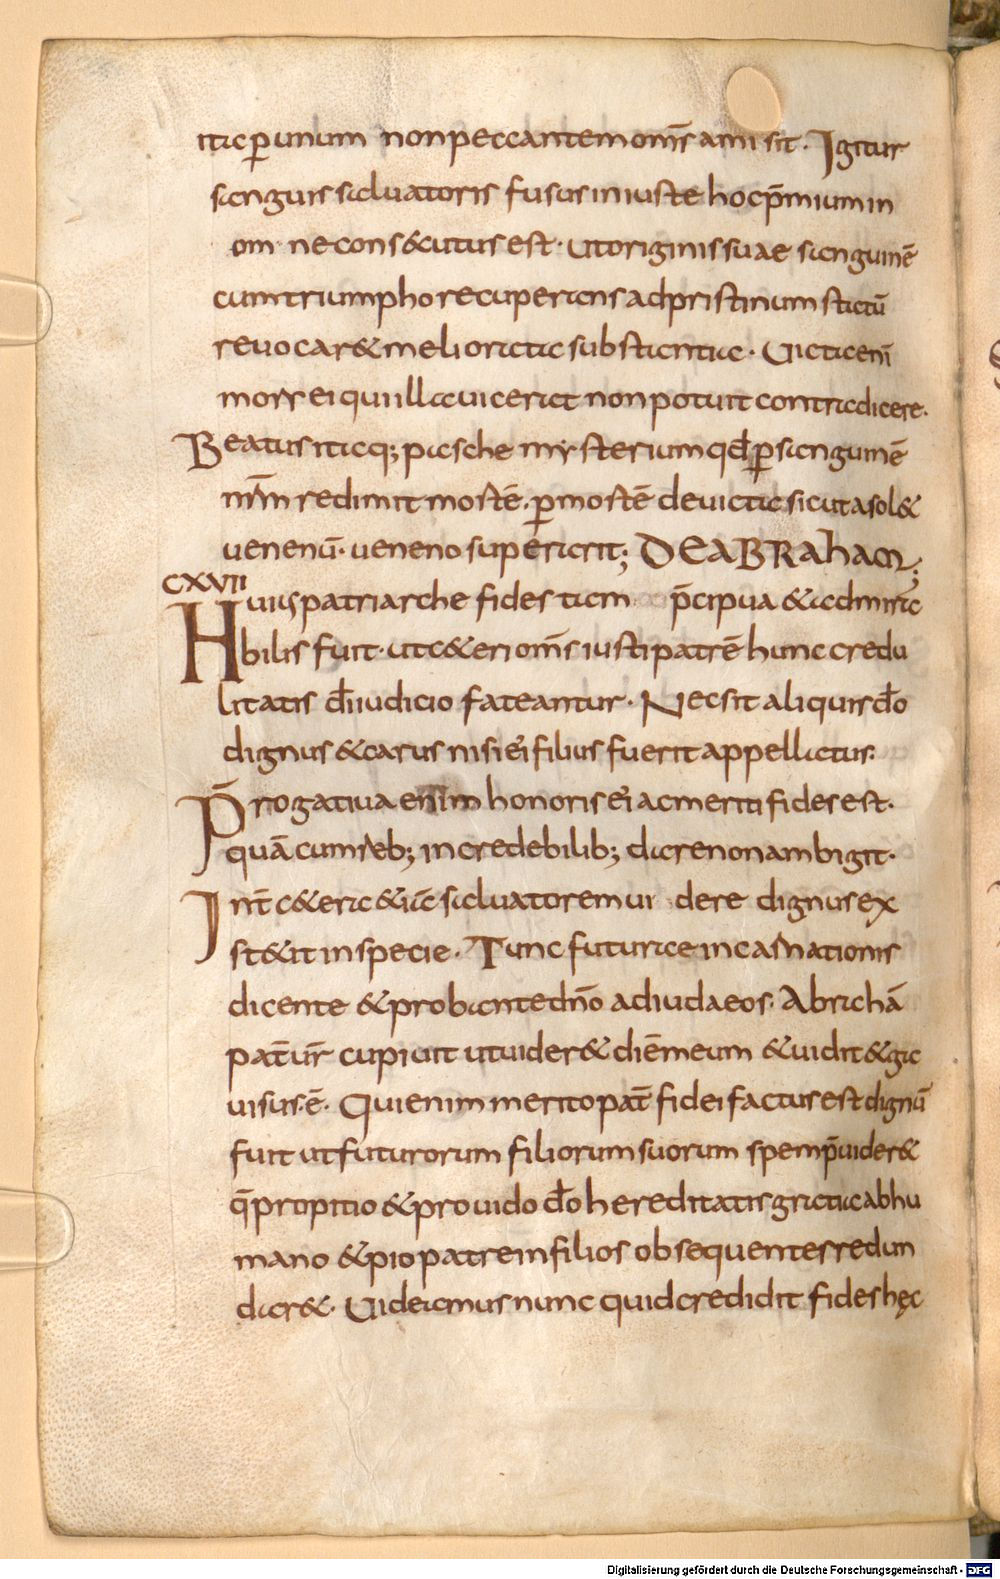 ita p̄ unum non peccantem om̄s amisit. Igitur
sanguis saluatoris fusus iniuste hoc p̄mium in
omne cons&utus est. ut originis suae sanguinē
cum triumpho recuperans ad pristinum statū
reuocar& meliorata substantia. Uicta enī
mors ei qui illa uicerat non potuit contradicere.
Beatus itaq; paschę mysterium qđ p̄ sanguinē
nr̄m redimit mortē. p̄ mortē deuicta sicut a sol&
uenenū. ueneno superarit; DE ABRAHAM;
CXVII
Huius patriarche fides tam p̄cipua & admira
bilis fuit. ut c&eri om̄s iusti patrē hunc credu
litatis d̄i iudicio fateantur. Nec sit aliquis d̄o
dignus & carus nisi ei filius fuerit appellatus.
P̄rogatiua enim honoris ei ac meriti fides est.
quā cum reb; incredebilib; dare non ambigit.
Int̄ c&era & hāc saluatorem uidere dignus ex
st&it in specie. Tunc futurae incarnationis
dicente & probante dn̄o ad iudaeos. Abrahā
pat̄ ur̄ cupiuit ut uider& diēm meum & uidit & ga
uisus ē. Qui enim merito pat̄ fidei factus est dignū
fuit ut futurorum filiorum suorum spem p̄uider&
q̄ propitio & prouido d̄o hereditatis gratia ab hu
mano & pio patre in filios obsequentes redun
dar&. Uideamus nunc quid credidit fides hęc
Digitalisierung gefördert durch die Deutsche Forschungsgemeinschaft - DFG